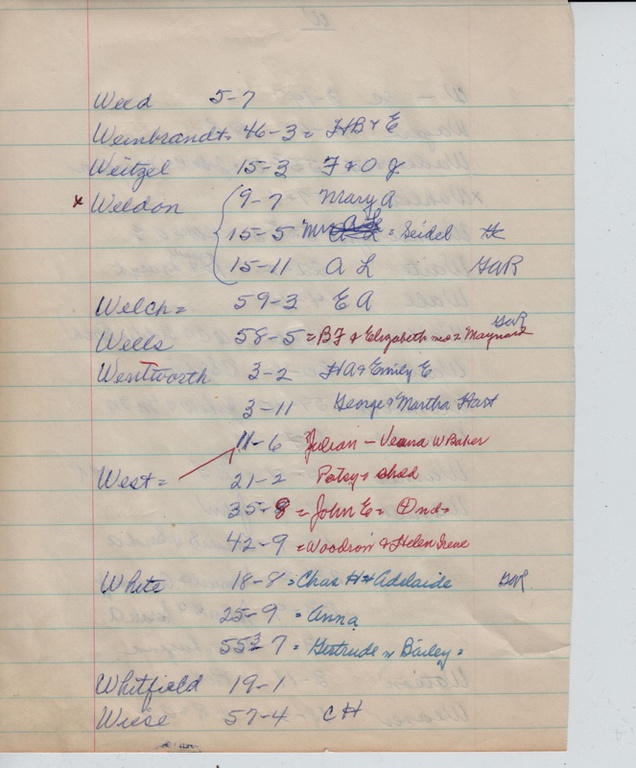 W
Weed 5-7
Weinbrandt = 46-3 = HB & E
Weitzel 15-3 F & O J
x Weldon 9-7 Mary A
15-5 Mrs = Seidel
15-11 A L GAR
Welch = 59-3 E A
GAR
Wells 58-5 = BF & Elizabeth = Maynard
Wentworth 3-2 HA & Emily E
3-11 George & Martha Hart
11-6 Julian - W Baker
West = 21-2 Patsy &
35-8 = John E =
42-9 = Woodrow & Helen Irene
White 18-8 = Chas H & Adelaide GAR
25-9 = Anna
55-7 = Gertrude Bailey =
Whitfield 19-1
Wiese 57-4 C H